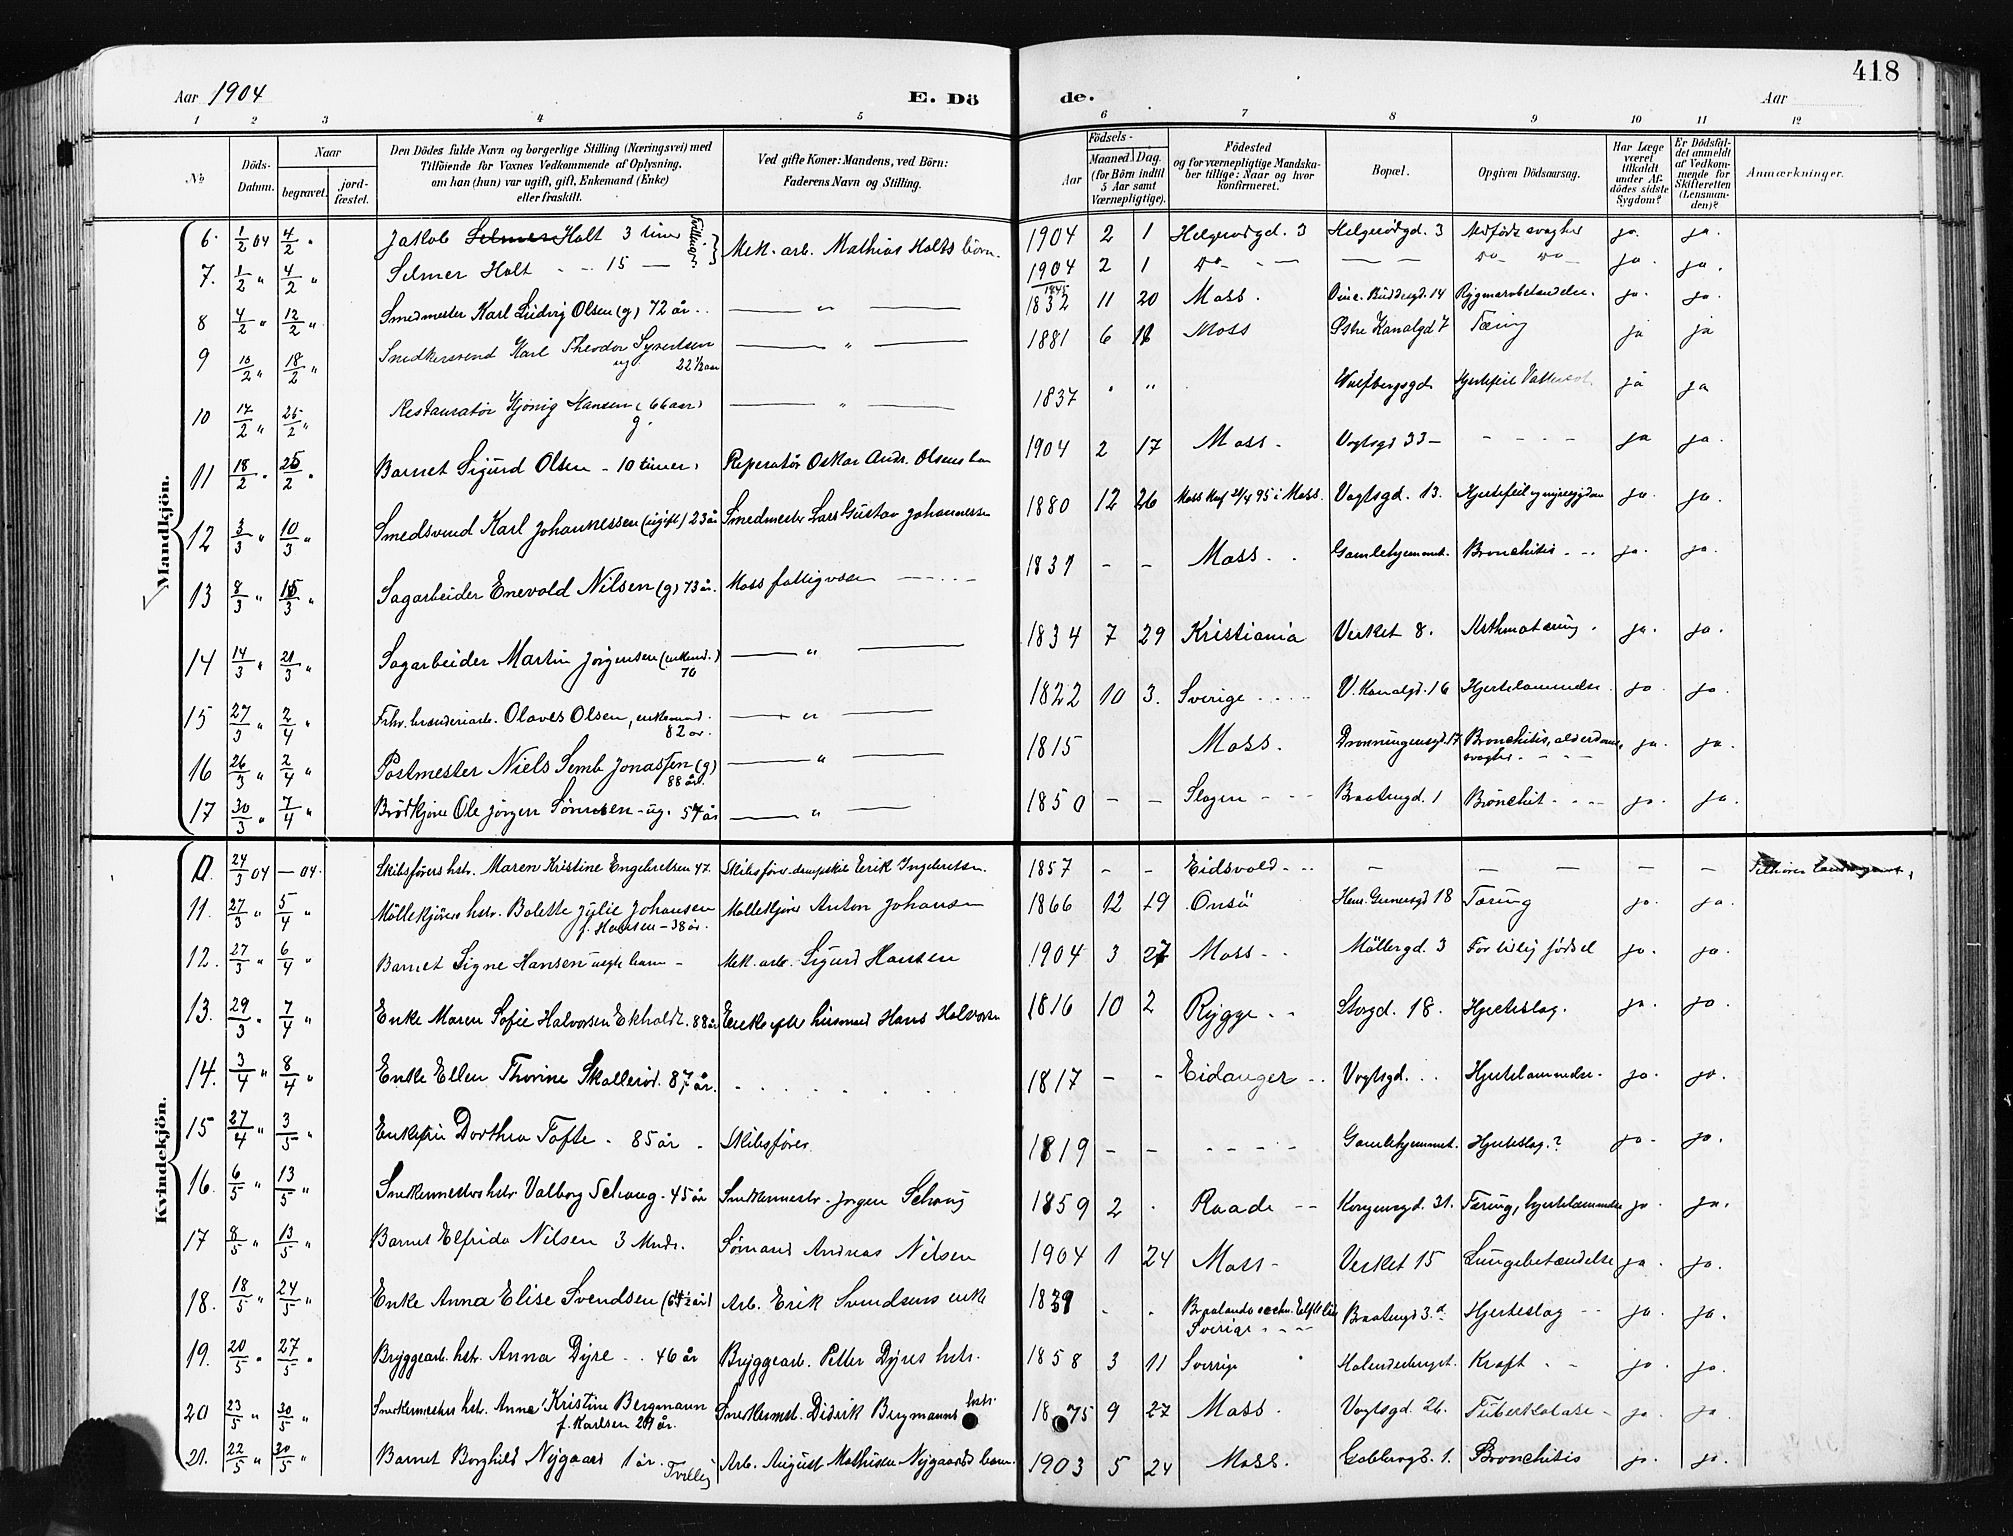 418
Aar 1904
E. Döde.
Aar
1 2 3 4 5 6 7 8 9 10 11 12
№
Döds-Datum.
Naar
begravet.
jord-fæstet.
Den Dödes fulde Navn og borgerlige Stilling (Næringsvei) med
Tilföiende for Voxnes Vedkommende af Oplysning,
om han (hun) var ugift, gift, Enkemand (Enke)
eller fraskilt.
Ved gifte Koner: Mandens, ved Börn:
Faderens Navn og Stilling.
Födsels-
Aar
Maaned Dag.
(for Börn indtil
5 Aar samt
Værnepligtige).
Födested
og for værnepligtige Mandska-
ber tillige: Naar og hvor
konfirmeret.
Bopæl.
Opgiven Dödsaarsag.
Har Læge
været
tilkaldt
under Af-
dödes sidste
Sygdom?
Er Dödsfal-
det anmeldt
af Vedkom-
mende for
Skifteretten
(Lensman-
den)?
Anmærkninger.
Mandkjön.
6. 1/2 04 4/2 " Jakob Selmer Holt 3 timer Mek. arb. Mathias Holts börn. 1904 2 1 Helgerödgd. 3 Helgerödgd. 3 Medfödt svaghed ja. ja.
7. 1/2 " 4/2 " Selmer Holt - - 15 — 1904 2 1 do - - — — — do do - ja. ja.
8 4/2 " 12/2 " Smedmester Karl Ludvig Olsen (g) 72 år. — " — 1832 11 20 Moss. 14 Rygmarvsbetændelse. ja. ja.
9 10/2 " 18/2 " Snedkersvend Karl Theodor Syvertsen ug 22 1/2 aar — " — 1881 6 Moss Østre Kanalgd 7 Tæring ja ja
10 17/2 " 25/2 " Restauratør Hjönig Hansen (66 aar) g. — " — 1837 " " Wulfbergsgd. Hjertefeil ja ja
11 18/2 " 25/2 " Barnet Sigurd Olsen - 10 timer. Reperatör Oskar Andr. Olsens 1904 2 17 Moss - Vogtsgd 33 - - - - - ja ja.
12 3/3 " 10/3 " Smedsvend Karl Johannessen (ugift) 23 år Smedmester Lars Gustav Johannessen 1880 12 26 Moss 95 i Moss. Vogtsgd. 13. Hjertefeil og nyresygdom ja. ja.
13 8/3 " 15/3 " Sagarbeider Enevold Nilsen (g) 73 år. Moss fattigvæsen - - - - 1831 - - Moss - . Gamlehjemmet. Bronchitis - - - ja. ja.
14 14/3 " 21/3 " Sagarbeider Martin Jörgensen (enkemd.) 70 — " — 1834 7 29 Kristiania Verket 8. Asthmatæring. ja. ja.
15 27/3 " 2/4 " Frhv. brænderiarb. Olaves Olsen, enkemand. 82 år. — " — 1822 10 3. Sverige - - - V. Kanalgd. 16 Hjertelammelse. ja. ja.
16 26/3 " 2/4 " Postmester Niels Semb Jonassen (g) 88 år. — " — 1815 Moss. Dronningensgd. 17 Bronchitis, alderdomssvaghed. - - - ja. ja.
17 30/3 " 7/4 " Brödkjörer Ole Jörgen Sörensen - ug. 54 år — " — 1850 - - Slagen - - - Braatengd. 1 Bronchit - - - ja. ja.
Kvindekjön.
24/3 04 — 04. Skibsförers hstr. Maren Kristine Engebretsen 47. Skibsförer dampskib Eerik Ingebretsen. 1857 - - Eidsvold - - - - - - -
11. 27/3 " 5/4 " Möllekjörers hstr. Bolette Julie Johansen f. Hansen - 38 år. Möllekjörer Anton Johansen 1866 12 19 Onsö Henr. Gernersgd 18 Tæring ja. ja.
12. 27/3 " 6/4 " Barnet Signe Hansen uegte barn - Mek. arb. Sigurd Hansen 1904 3 27 Moss - - Möllergd. 3 For tidlig födsel ja. ja.
13. 29/3 " 7/4 " Enke Maren Sofie Halvorsen Ekholdt. 88 år Enke efter husmand Hans Halvorsen 1816 10 2 Rygge - - Storgd. 18. Hjerteslag. ja. ja.
14. 3/4 " 8/4 " Enke Ellen Thorine Skalleröd. 87 år. . . . . 1817 - - Eidanger - - Vogtsgd. . . . Hjertelammelse. ja. ja.
15 27/4 " 3/5 " Enkefru Dorthea Tofte - 85 år - Skibsförer 1819 - - - - - - Gamlehjemmet. Hjerteslag? ja - ja.
16. 6/5 " 13/5 " Snedkermesterhstr Valborg Schaug - 45 år Snedkermestr. Jörgen Schaug 1859 2 . Raade - - Kongensgd. 31. Tæring, hjertelammelse ja. ja.
17 8/5 " 13/5 " Barnet Elfrida Nilsen 3 Mndr. Sömand Andreas Nilsen 1904 1 24 Moss - Verket 15 Lungebetændelse ja. ja.
18. 18/5 " 24/5 " Enke Anna Elise Svendsen (64 1/2 år) Arb. Erik Svendsens enke 1839 - . Sverige - - - Braatengd 3.a Hjerteslag - - ja. ja.
19. 20/5 " 27/5 " Bryggearb. hstr. Anna Dyre . . 46 år Bryggearb. Petter Dyres hstr. 1858 3 11 Sverige Kræft - - ja. ja.
20 23/5 " 30/5 " Snedkermesters hstr. Anne Kristine Bergmann f. Karlsen 29 år. Snedkermst. Didrik Bergmanns hstr. 1875 9 27 Moss Vogtsgd. 26. Tuberkulose - ja. ja.
21. 22/5 " 30/5 " Barnet Borghild Nygaard 1 år. Tvilling Arb. August Mathisen Nygaards barn. 1903 5 24 Moss. 1. Bronchitis ja. ja.